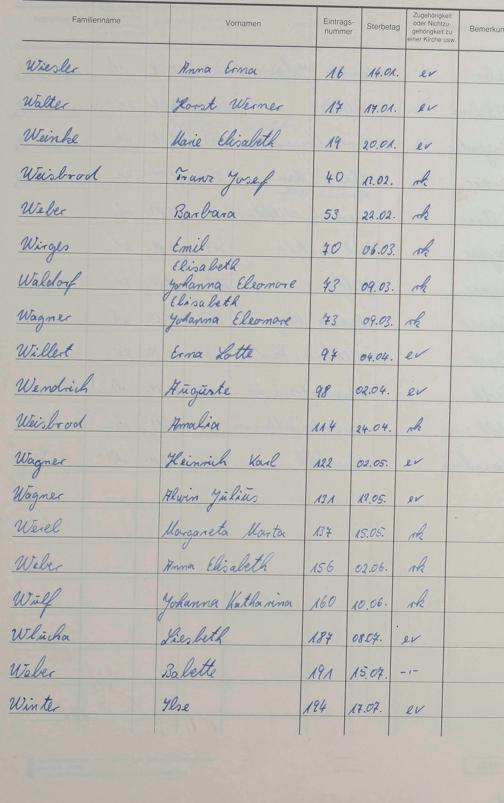 Familienname Vornamen Eintrags-nummer Sterbetag Zugehörigkeit oder Nichtzu-gehörigkeit zu einer Kirche usw. Bemerkun
Wiesler Anna Erna 16 14.01. ev
Walter Horst Werner 17 17.01. ev
Weinke Marie Elisabeth 19 20.01. ev
Weisbrod Franz Josef 40 17.02. rk
Weber Barbara 53 22.02. rk
Wirges Emil 70 06.03. rk
Elisabeth
Waldorf Johanna Eleonore 73 09.03. rk
Elisabeth
Wagner Johanna Eleonore 73 09.03. rk
Willert Erna Lotte 97 04.04. ev
Wendrich Auguste 98 02.04. ev
Weisbrod Amalia 114 24.04. rk
Wagner Heinrich Karl 122 02.05. ev
Wagner Alwin Julius 131 12.05. ev
Margareta Marta 137 15.05. rk
Weber Anna Elisabeth 156 02.06. rk
Wulf Johanna Katharina 160 10.06. rk
Wlucha Liesbeth 187 08.07. ev
Weber Babette 191 15.07. -"-
Winter Ilse 194 17.07. ev